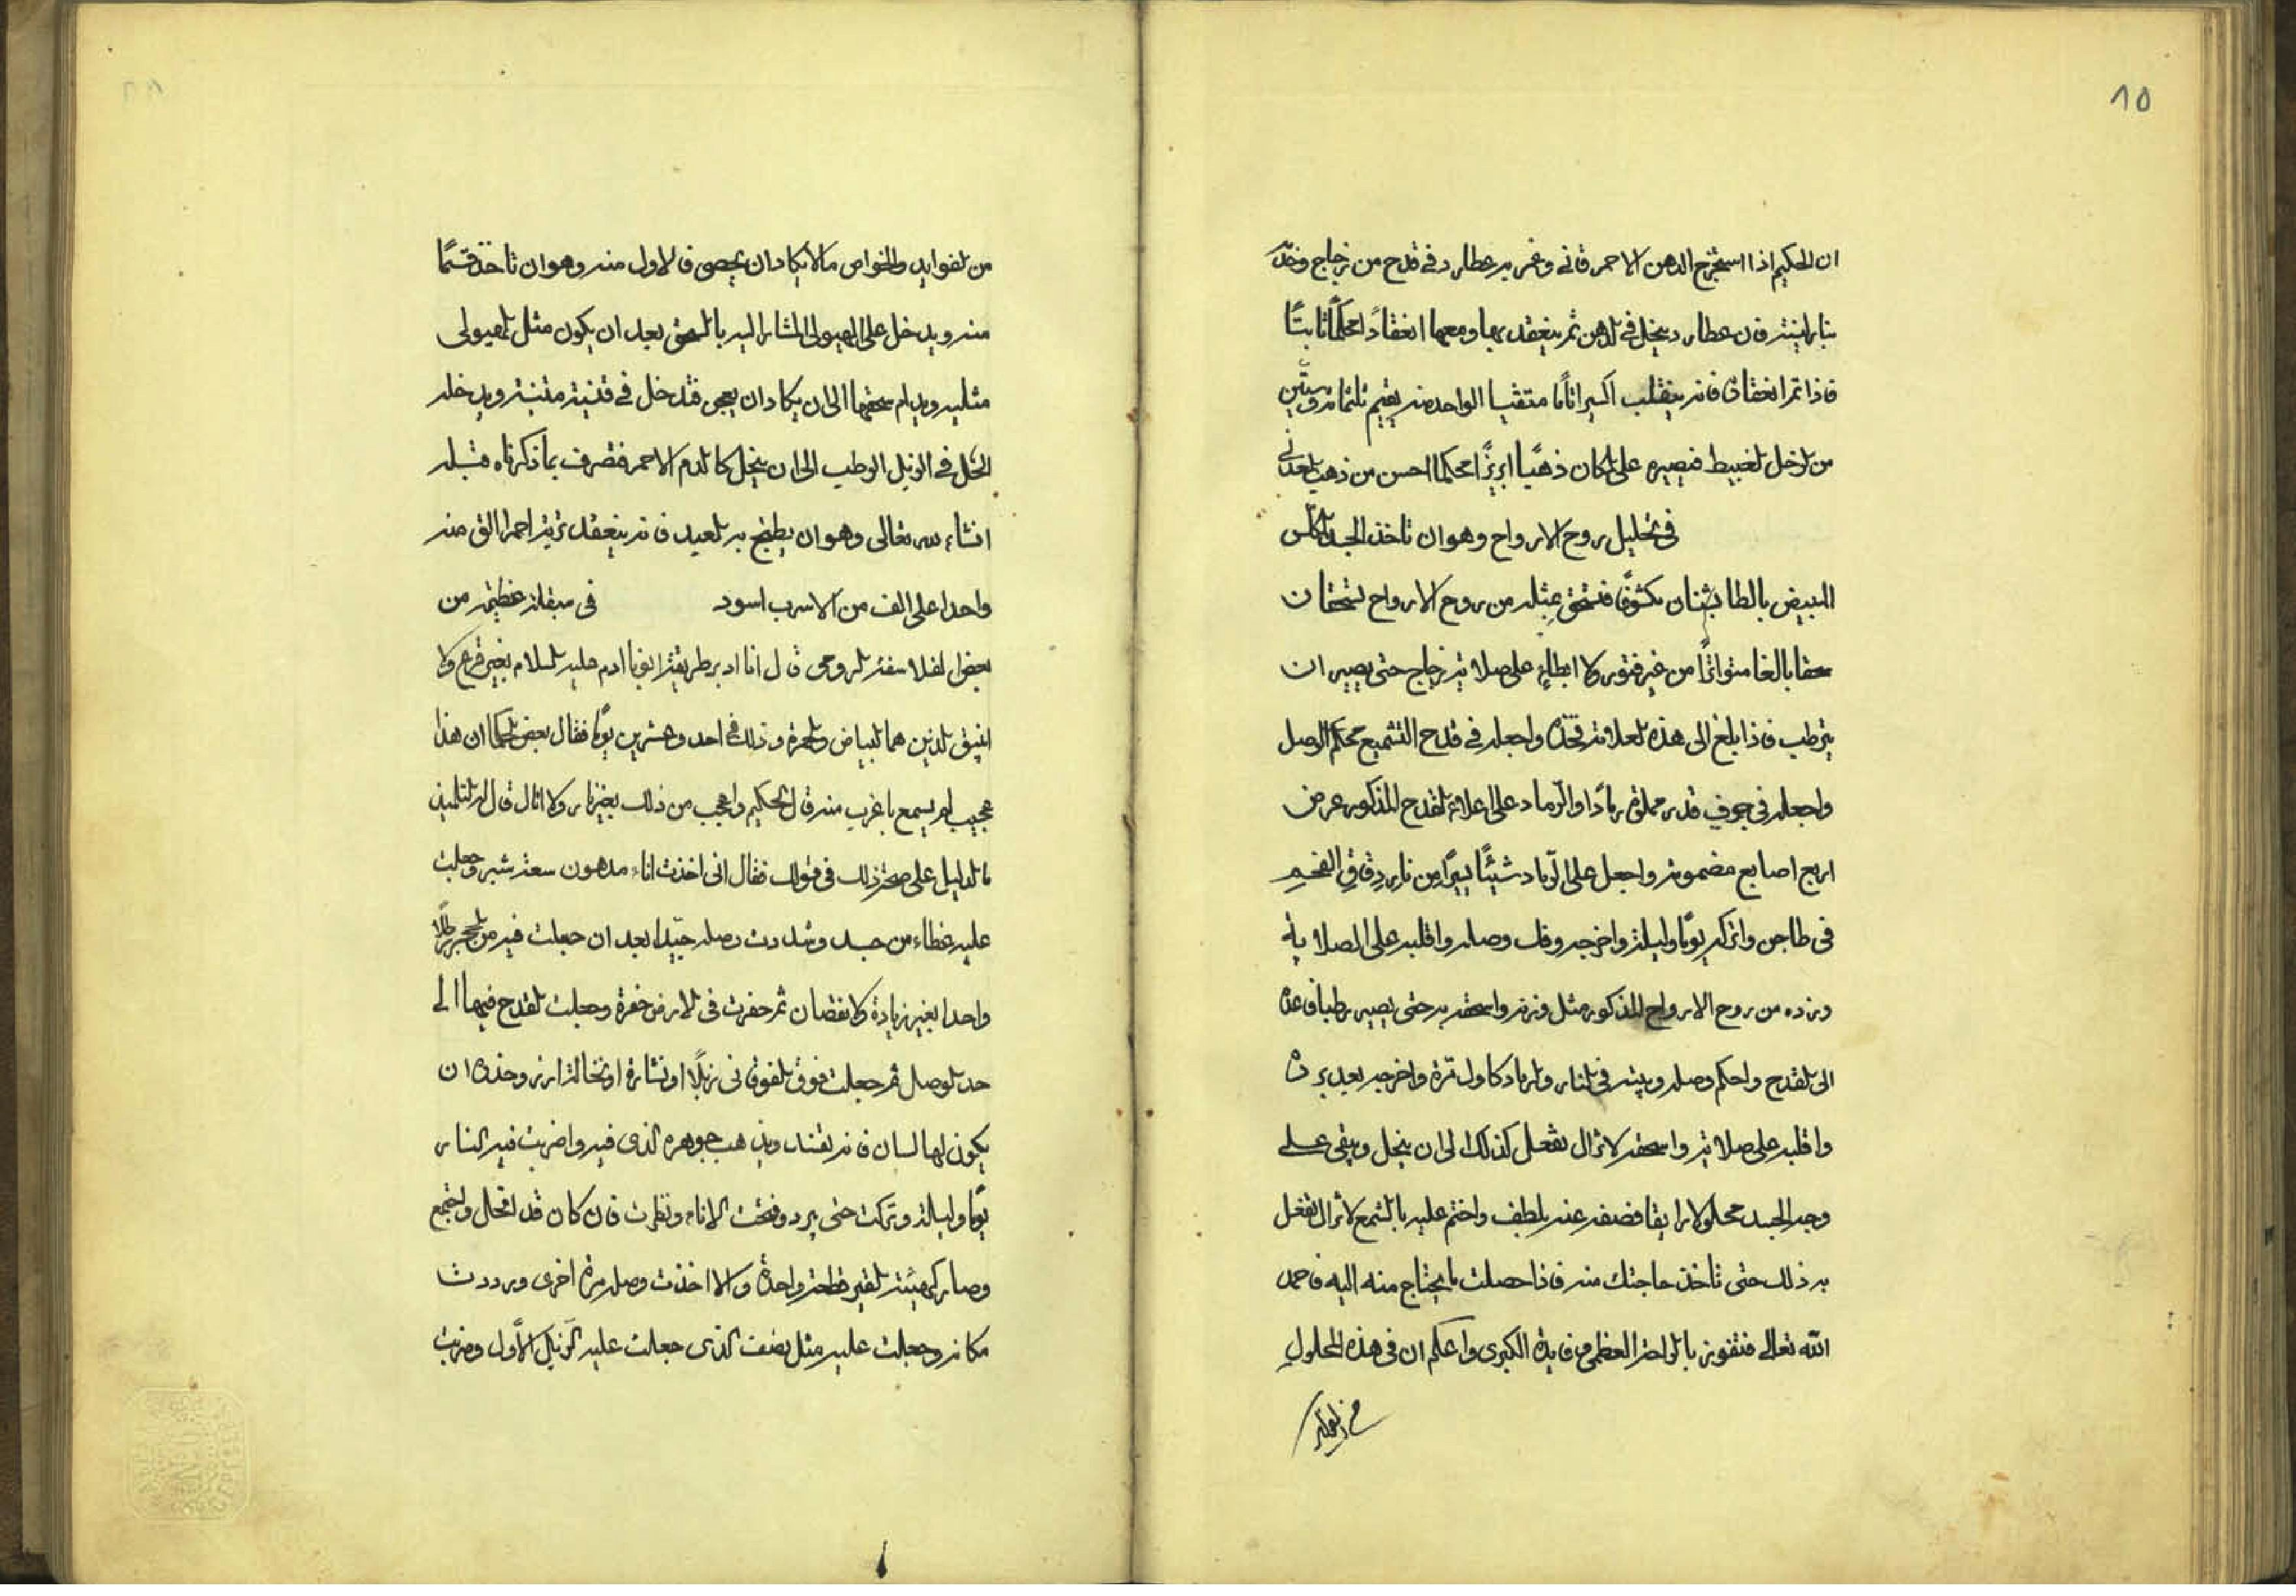 ١٥
ان الحكيم اذا استخرج الدهن الاحمر قانى وغمر به عطارد فى قدح من زجاج وخدّه
بنار لينة فان عطارد ينحل فى الدهن ثم ينعقد بها ومعها انعقادًا محكمًا ثابتًا
فاذا تم انعقاده فانه ينقلب اكسيرا تامًا منقيا الواحد منه يقيم ثلثمائة وستّين
من الزحل الغبيط فيصيره على المكان ذهبًا ابريزًا محكما احسن من ذهب المعدنى
فى تحليل روح الارواح وهو ان تاخذ الجسد المكلّس
المبيض بالطا مكشوفًا فتسحق بمثله من روح الارواح يسحقان
سحقا بالغا متواترًا من غير فتور ولا ابطاء على صلاية زجاج حتى يصير ان
يترطب فاذا بلغ الى هذه العلامة فخذه واجعله فى قدح التشميع محكم الوصل
واجعله فى جوف قدر مملوة رمادًا والرّماد على اعلاء القدح المذكور عرض
اربع اصابع مضمومة واجعل على الرّماد شيئًا يسيرًا من نار دِقاقِ الفحم
فى طاجن واتركه يومًا وليلة واخرجه وفك وصله واقلبه على الصلاية
وزده من روح الارواح المذكور مثل وزنه واسحقه به حتى يصير رطبا فاعده
الى القدح واحكم وصله وبيته فى النار والرماد كاول مَرّة واخرجه بعد برده
واقلبه على صلاية واسحقه لا تزال تفعل كذلك الى ان ينحل ويبقى على
وجه الجسد محلولا رايقا فصفه عنه بلطف واختم عليه بالشمع لا تزال تفعل
به ذلك حتى تاخذ حاجتك منه فاذا حصلت ما يحتاج منه اليه فاحمد
الله تعالى فتفوز بالراحة العظمى وفايدة الكبرى واعلم ان فى هذه المحلولِ
من الفوايد
من الفوايد والخواص ما لا يكاد ان يحصى فالاول منه وهو ان تاخذ قسمًا
منه ويدخل على الهيولى المشار اليه بالسحق بعد ان يكون مثل الهيولى
مثليه ويدام سحقها الى ان يكاد ان يجرى فتدخل فى قنينة متينة ويدخله
الحَل فى الزبل الرطب الى ان ينحل كالدم الاحمر فتصرف بما ذكرناه قبله
انشاء الله تعالى وهو ان يطبخ به العبد فانه ينعقد تربة احمرا الق منه
واحدا على الف من الاسرب اسود فى مبقلة عظيمة من
بعض الفلاسفة الروحى قال انا ادبر طريقة ابونا ادم عليه السلام بغير قرع ولا
انبيق اللذين هما البياض والحمرة وذلك فى احد وعشرين يومًا فقال بعض الحكما ان هذا
عجيب لم يسمع باغرب منه قال الحكيم واعجب من ذلك بغير نار ولا اثال قال له التلميذ
ما الدليل على صحة ذلك فى قولك فقال انى اخذت اناء مدهون سعته شبر وجعلت
عليه غطاء من جسد وشددت وصله جيّدا بعد ان جعلت فيه من الحجر رطلًا
واحدا بغير زيادة ولا نقصان ثم حفرت فى الارض حفرة وجعلت القدح فيها الى
حد الوصل ثم جعلت فوق الفوقانى زبلًا او نشارة او نخالة ارز وحذره ان
يكون لها لسان فانه يفسد ويذهب جوهره الذى فيه واضربت فيه النار
يومًا وليلة وتركت حتى يبرد وفتحت الاناء ونظرت فان كان قد انحل واجتمع
وصار كهيئة القير قطعة واحدة والا اخذت وصله مرة اخرى ورددت
مكانه وجعلت عليه مثل نصف الذى جعلت عليه الزبل الاَول وضربت